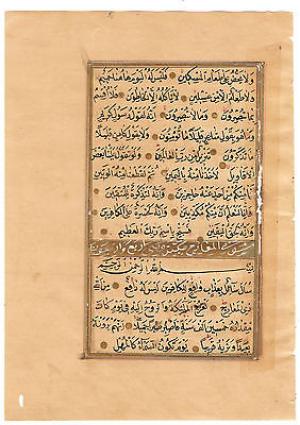 ولا يحض على طعام المسكين فليس له اليوم ههنا حميم
ولا طعام الا من غسلين لا يأكله الا الخاطئون فلا اقسم
بما تبصرون وما لا تبصرون انه لقول رسول كريم
وما هو بقول شاعر قليلا ما تؤمنون ولا بقول كاهن قليلا
ما تذكرون تنزيل من رب العالمين ولو تقول علينا بعض
الاقاويل لاخذنا منه باليمين ثم لقطعنا منه الوتين
فما منكم من احد عنه حاجزين وانه لتذكرة للمتقين
وانا لنعلم ان منكم مكذبين وانه لحسرة على الكافرين
وانه لحق اليقين فسبح باسم ربك العظيم
سورة المعارج مكية وهي اربع واربعون
بسم الله الرحمن الرحيم
سأل سائل بعذاب واقع للكافرين ليس له دافع من الله
ذي المعارج تعرج الملئكة والروح اليه في يوم كان
مقداره خمسين الف سنة فاصبر صبرا جميلا انهم يرونه
بعيدا ونريه قريبا يوم تكون السماء كالمهل